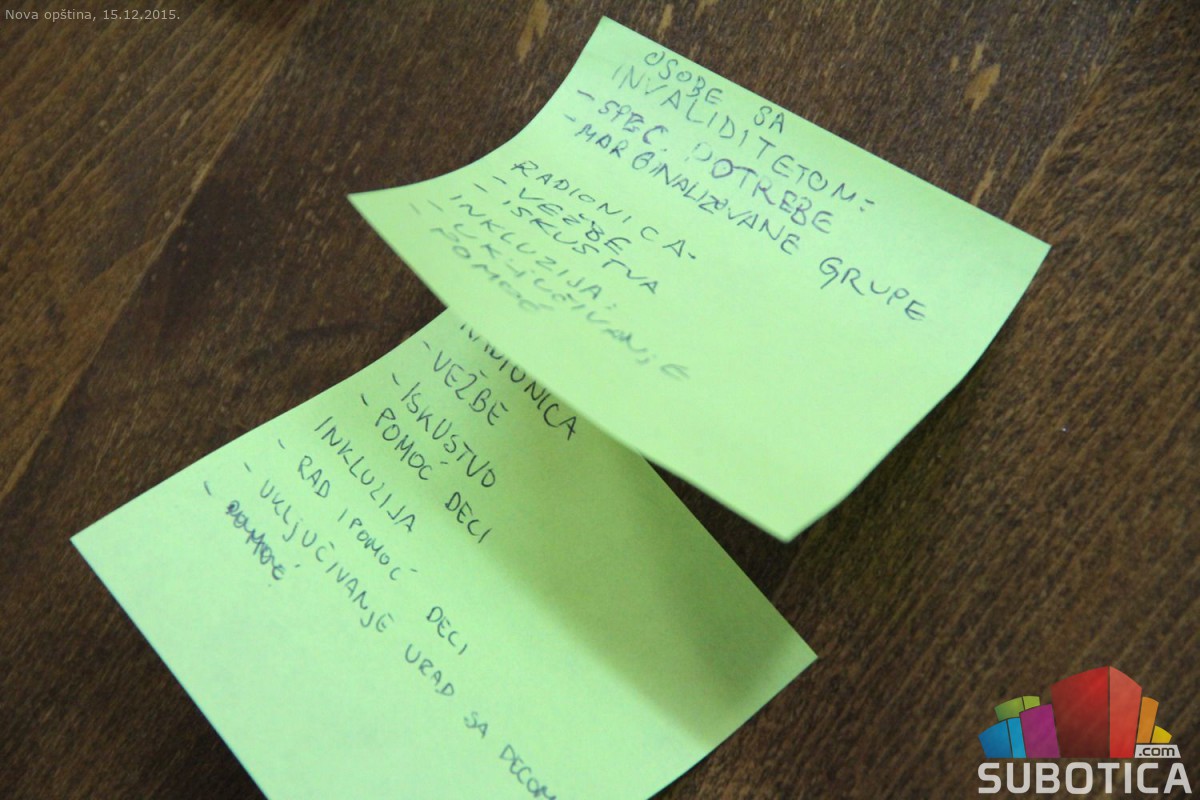 Nova opština, 15.12.2015.
OSOBE SA
INVALIDITETOM:
- SPEC. POTREBE
- MARGINALIZOVANE GRUPE
RADIONICA.
- VEŽBE
- ISKUSTVA
INKLUZIJA:
- UKLJUČIVANJE
- POMOĆ
RADIONICA
- VEŽBE
- ISKUSTVO
- POMOĆ DECI
INKLUZIJA
- RAD I POMOĆ DECI
- UKLJUČIVANJE U RAD SA DECOM
-
.com
SUBOTICA